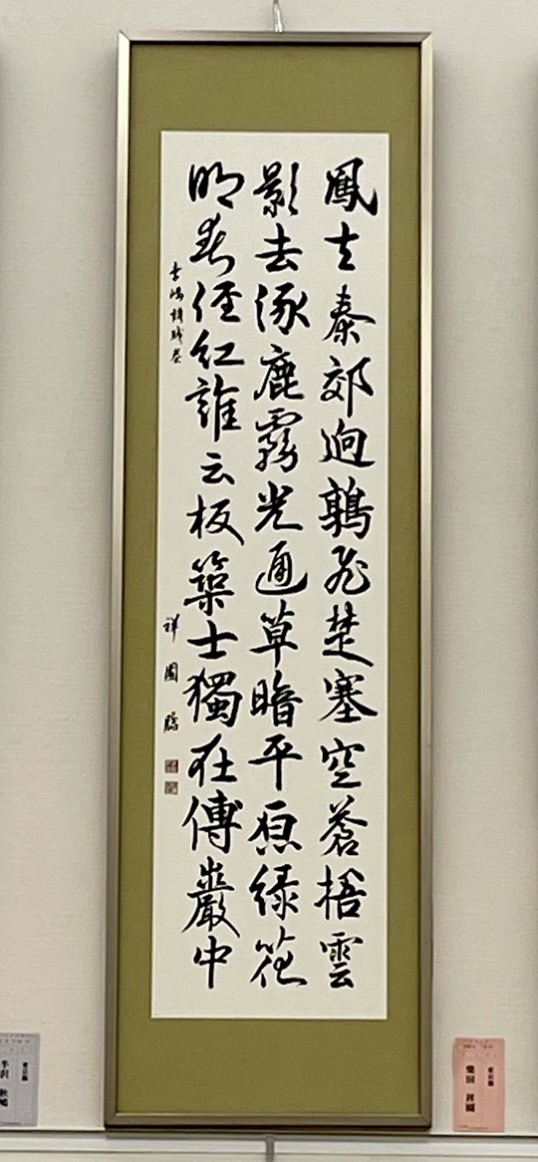 鳳出秦郊迥鶉飛楚塞空蒼梧雲
影去涿鹿霧光通草暗平原緑花
明春徑紅誰云板築士獨在傅巖中
李嶠詩残巻
祥園臨